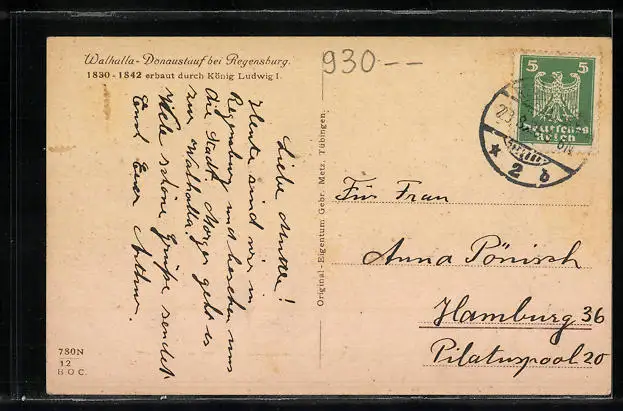 Walhalla-Donaustauf bei Regensburg.
1830-1842 erbaut durch König Ludwig I.
930--
Liebe Mutter!
Heute sind wir in
Regensburg und besehen uns
die Stadt. Morgen geht es
zur Walhalla.
Viele schöne Grüße sendet
Euch Euer Arthur.
Original-Eigentum Gebr. Metz, Tübingen.
5 5
Deutsches
Reich
* 2 b
Für Frau
Anna Pönisch
Hamburg 36
Pilatuspool 20
780N
12
BOC.